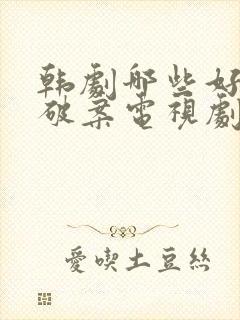 韩劇哪些好
破案電視劇
愛喫土豆絲